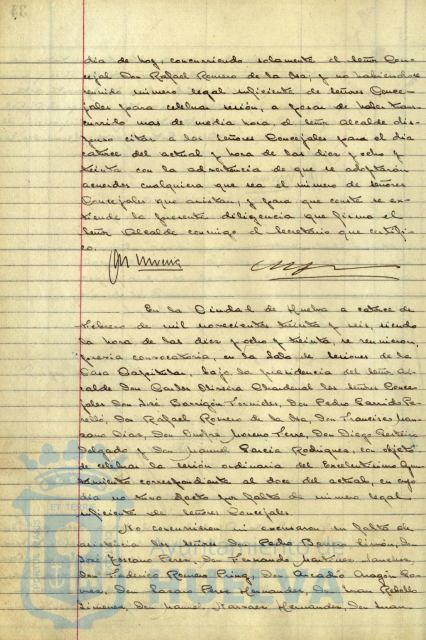 día de hoy, concurriendo solamente el señor Con-
cejal Don Rafael Romero de la Osa; y no habiéndose
reunido número legal suficiente de señores Conce-
jales para celebrar sesión, a pesar de haber trans-
currido mas de media hora, el señor Alcalde dis-
puso citar a los señores Concejales para el día
catorce del actual y hora de las diez y ocho y
treinta con la advertencia de que se adoptarán
acuerdos cualquiera que sea el número de señores
Concejales que asistan, y para que conste se ex-
tiende la presente diligencia que firma el
señor Alcalde conmigo el Secretario que certifi-
co.
En la Ciudad de Huelva a catorce de
Febrero de mil novecientos treinta y seis, siendo
la hora de las diez y ocho y treinta, se reunieron,
previa convocatoria, en la Sala de sesiones de la
Casa Capitular, bajo la presidencia del señor Al-
calde Don Carlos Oliveira Chardenal los señores Conce-
jales Don José Barrigón Don Pedro Garrido Pe-
relló, Don Rafael Romero de la Osa, Don Francisco Man-
zano Días, Don Moreno Don Diego
Delgado y Don Manuel García Rodríguez, con objeto
de celebrar la sesión ordinaria del Excelentísimo Ayun-
tamiento correspondiente al doce del actual, en cuyo
día no tuvo efecto por falta de número legal
suficiente de señores Concejales.
No concurrieron ni excusaron su falta de
asistencia los señores Don Pedro Limón, Don
José Perez, Don Fernando Martinez Sanchez,
Don Federico Romero Don Arcadio Aragón
Don Perez Hernandez, Don Juan Rebollo
Jimenez, Don Manuel Hernandez, Don Juan
Ayuntamiento de